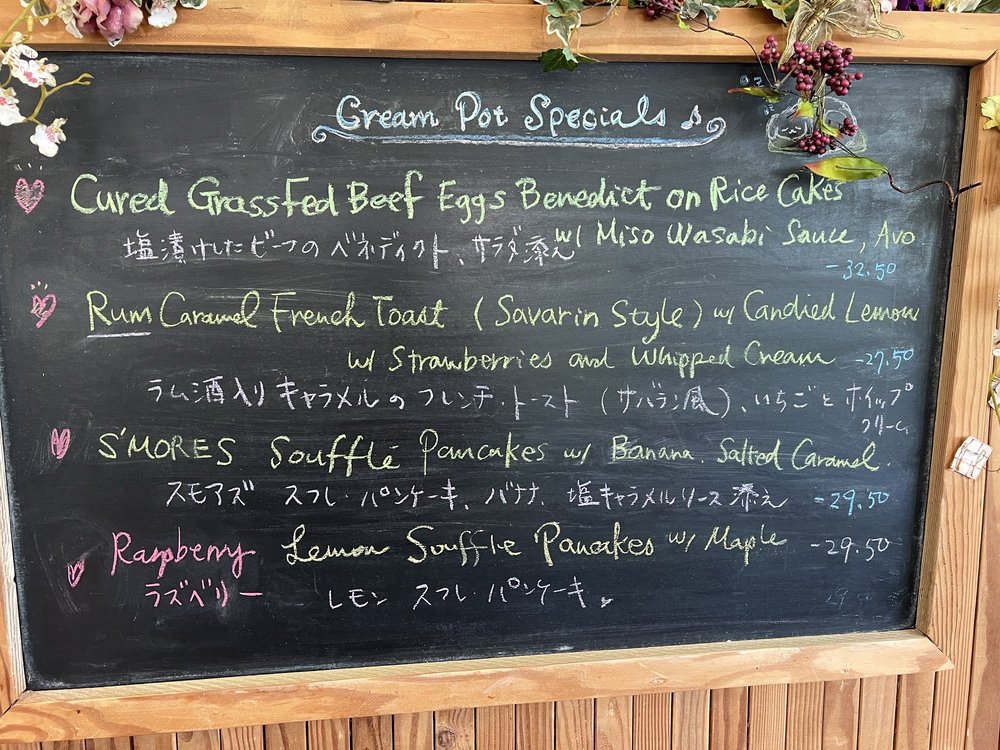 Cream Pot Specials ♪
Cured GrassFed Beef Eggs Benedict on Rice Cakes
w/ Miso Wasabi Sauce, Avo
塩漬けしたビーフのベネディクト、サラダ添え
-32.50
Rum Caramel French Toast (Savarin Style) w/ Candied Lemon
w/ Strawberries and Whipped Cream -27.50
ラム酒入りキャラメルのフレンチ・トースト (サバラン風)、いちごとホイップ
クリーム。
S'MORES Soufflé Pancakes w/ Banana. Salted Caramel.
スモアズ スフレ・パンケーキ、バナナ、塩キャラメルソース添え -29.50
Raspberry Lemon Souffle Pancakes w/ Maple -29.50
ラズベリー レモン スフレ・パンケーキ。